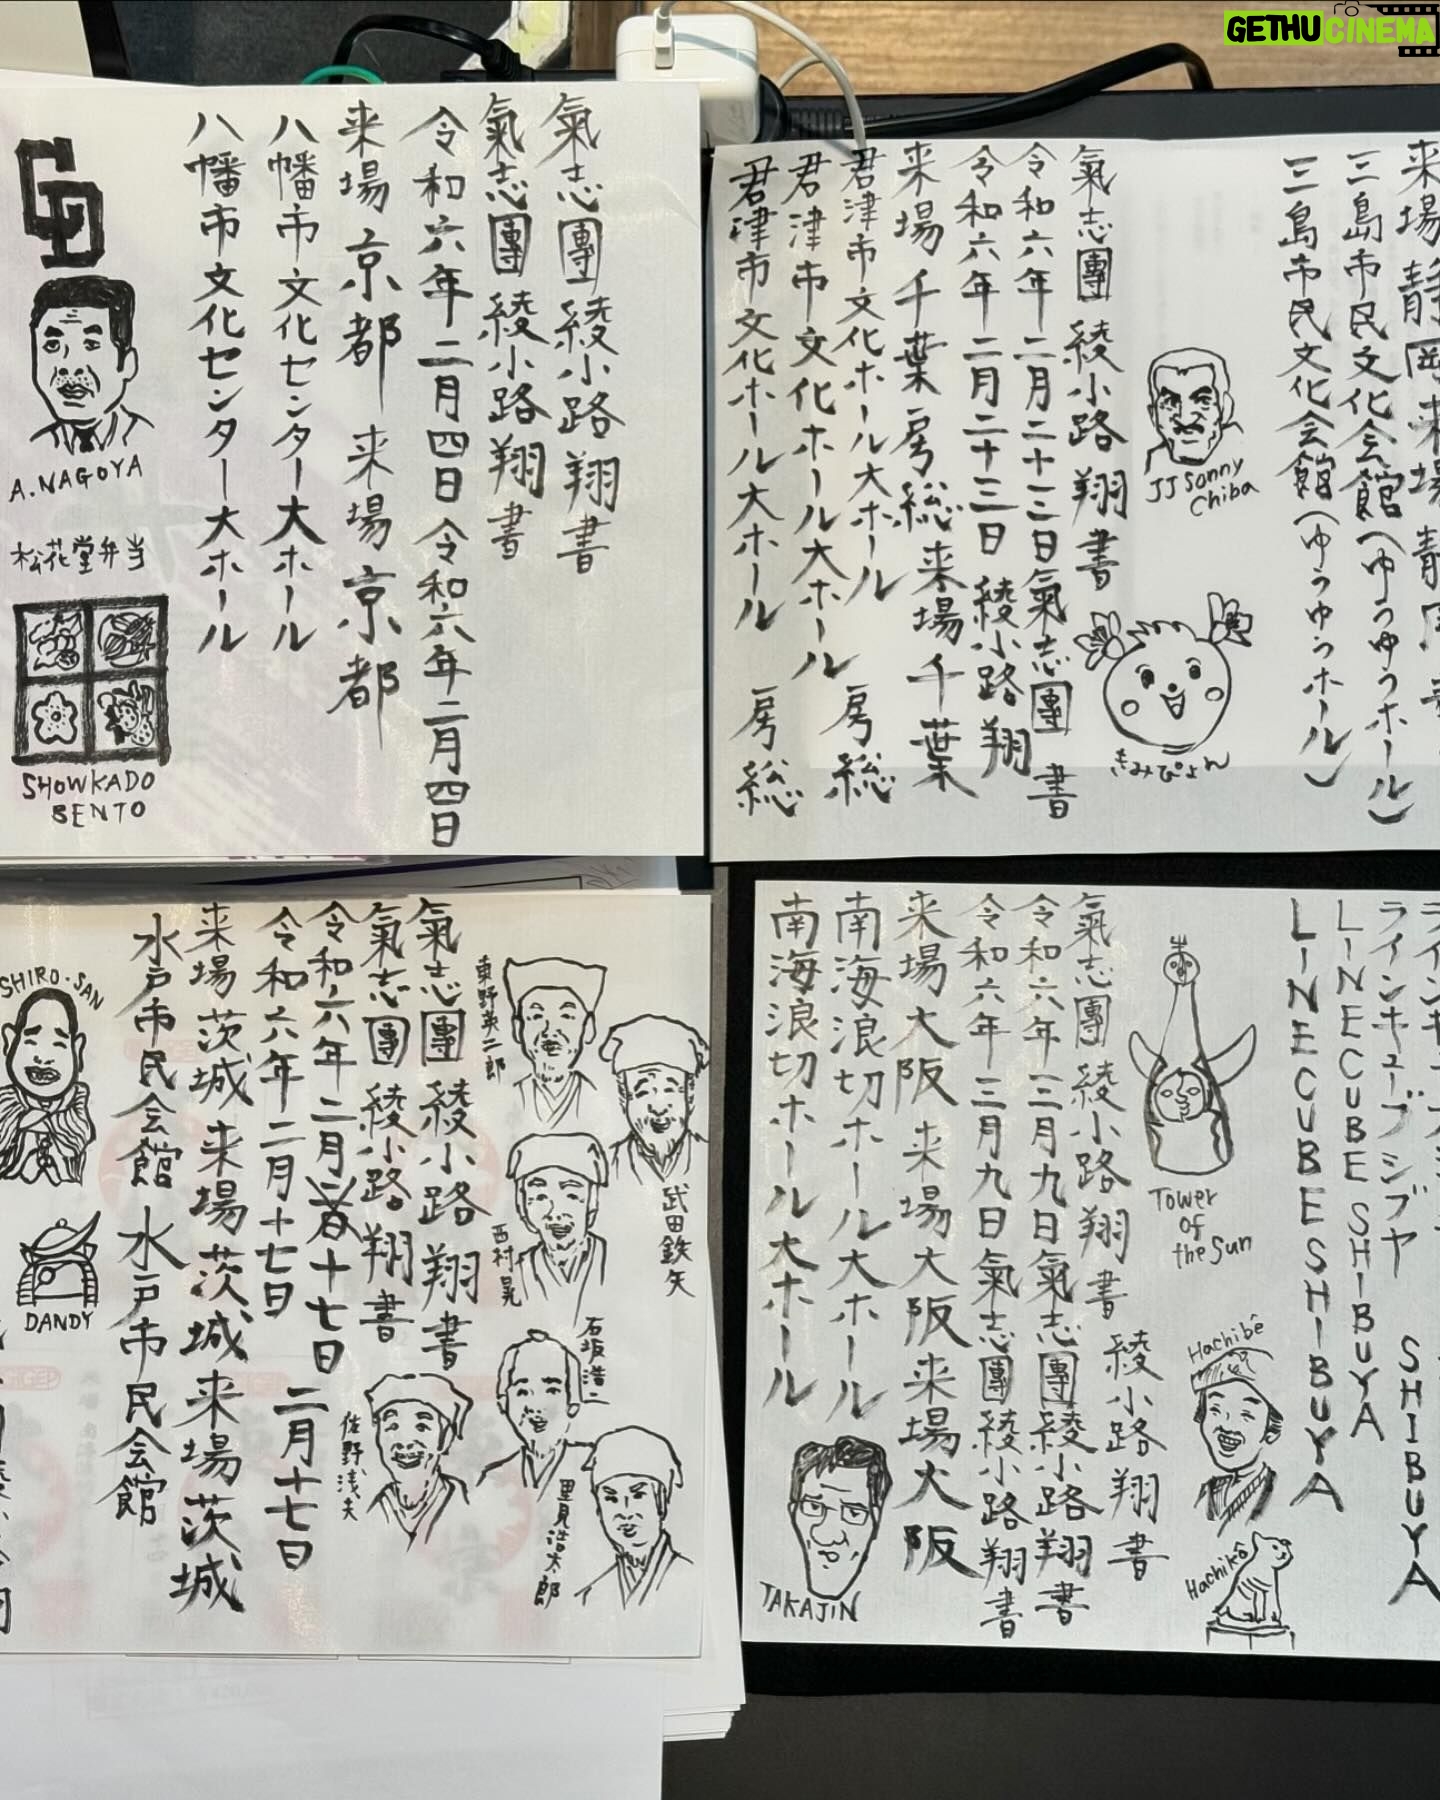 GETHUCINEMA
氣志團 綾小路 翔 書
氣志團 綾小路 翔 書
令和六年 二月四日 令和六年二月四日
来場 京都 来場 京都
八幡市文化センター大ホール
八幡市文化センター大ホール
A.NAGOYA
松花堂弁当
SHOWKADO
BENTO
来場 静岡 来場
三島市民文化会館(ゆうゆうホール)
三島市民文化会館(ゆうゆうホール)
JJ Sonny
Chiba
きみぴょん
氣志團 綾小路 翔 書
令和六年 二月二十三日氣志團 書
令和六年 二月二十三日 綾小路 翔
来場 千葉 房総 来場 千葉
君津市文化ホール大ホール 房総
君津市文化ホール大ホール
君津市文化ホール大ホール 房総
東野英二郎
武田鉄矢
西村晃
石坂浩二
佐野浅夫
里見浩太郎
氣志團 綾小路 翔 書
氣志團 綾小路 翔 書
令和六年 二月十七日
令和六年 二月十七日 二月十七日
来場茨城 来場茨城 来場茨城
水戸市民会館 水戸市民会館
SHIRO-SAN
DANDY
ラインキューブシブヤ
LINECUBE SHIBUYA
LINECUBE SHIBUYA
SHIBUYA
Tower
of
the Sun
Hachibê
Hachikô
綾小路 翔 書
氣志團 綾小路 翔 書
令和六年 三月九日氣志團 綾小路 翔 書
令和六年 三月九日氣志團 綾小路 翔 書
来場大阪 来場大阪 来場大阪
南海浪切ホール大ホール
南海浪切ホール大ホール
TAKAJIN